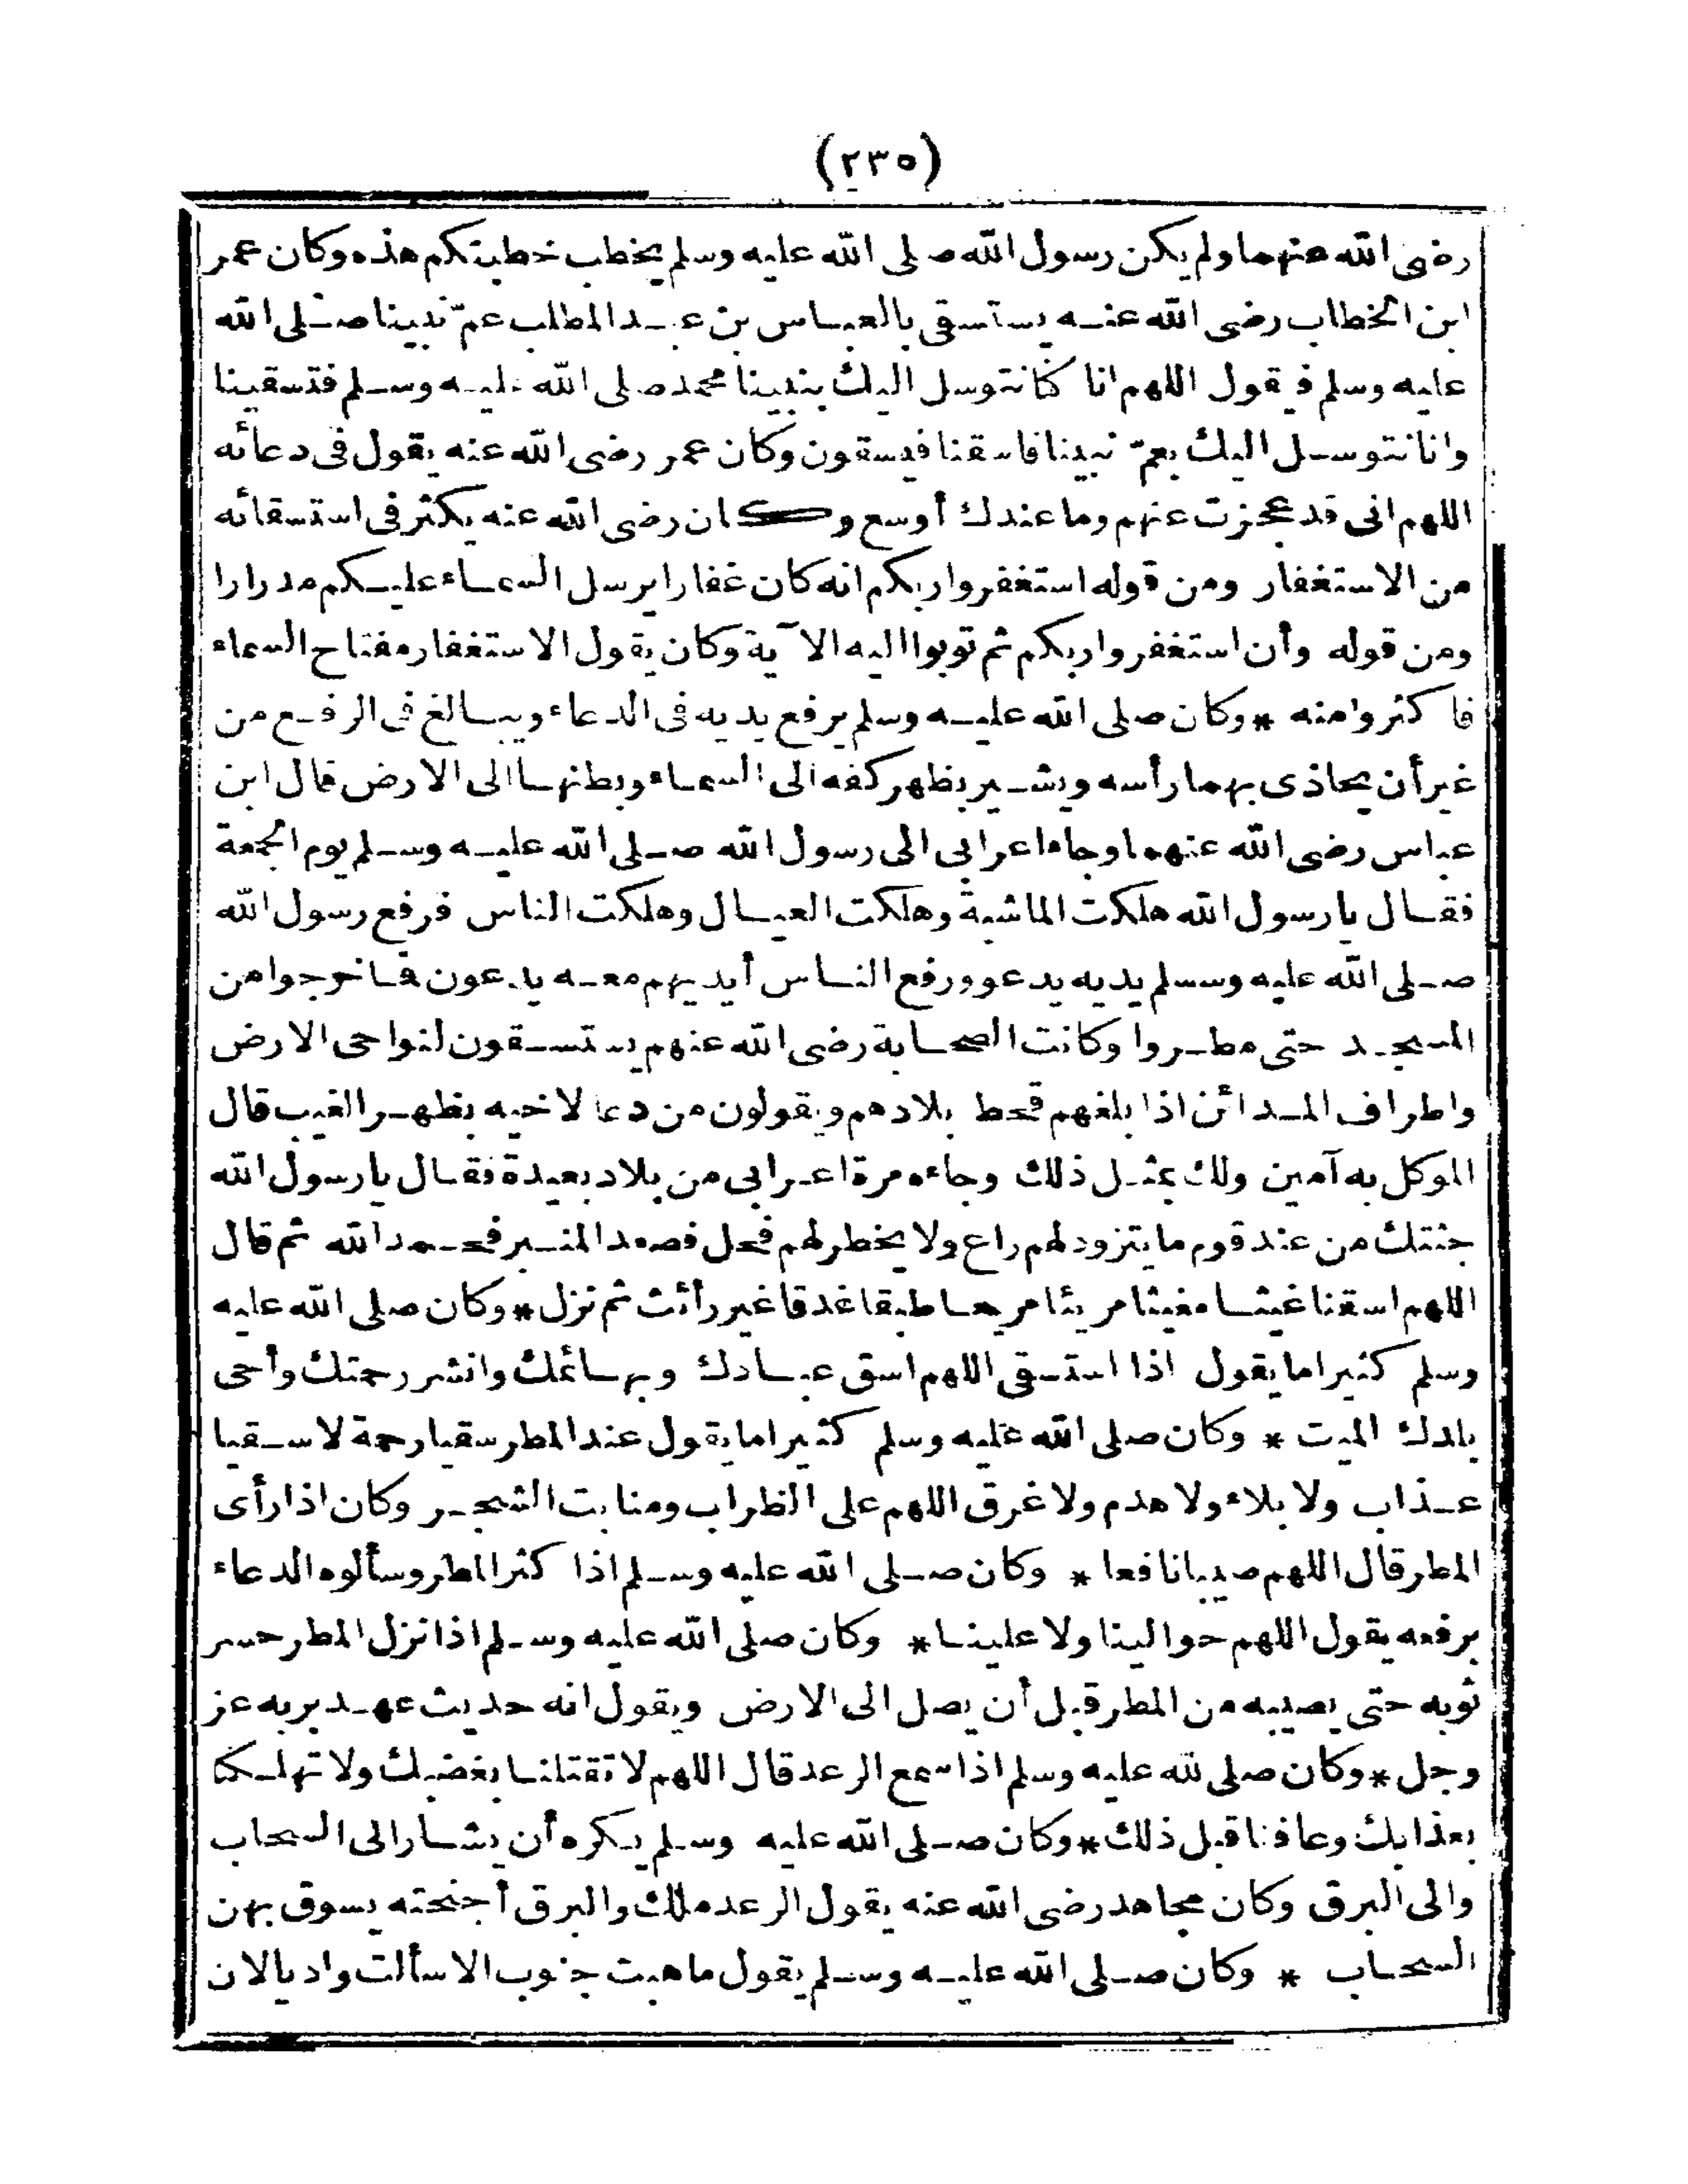 (٢٣٥)
رضى الله عنهما ولم يكن رسول الله صلى الله عليه وسلم يخطب خطبتكم هذه وكان عمر
ابن الخطاب رضى الله عنه يستسقى بالعباس بن عبد المطلب عمّ نبينا صلى الله
عليه وسلم فيقول اللهم انا كنا نتوسل اليك بنبينا محمد صلى الله عليه وسلم فتسقينا
وانا نتوسل اليك بعمّ نبينا فاسقنا فيسقون وكان عمر رضى الله عنه يقول فى دعائه
اللهم انى قد عجزت عنهم وما عندك أوسع وكان رضى الله عنه يكثر فى استسقائه
من الاستغفار ومن قوله استغفروا ربكم انه كان غفارا يرسل السماء عليكم مدرارا
ومن قوله وأن استغفروا ربكم ثم توبوا اليه الآية وكان يقول الاستغفار مفتاح السماء
فاكثروا منه * وكان صلى الله عليه وسلم يرفع يديه فى الدعاء ويبالغ فى الرفع من
غير أن يحاذى بهما رأسه ويشير بظهر كفه الى السماء وبطنها الى الارض قال ابن
عباس رضى الله عنهما وجاء اعرابى الى رسول الله صلى الله عليه وسلم يوم الجمعة
فقال يا رسول الله هلكت الماشية وهلكت العيال وهلكت الناس فرفع رسول الله
صلى الله عليه وسلم يديه يدعو ورفع الناس أيديهم معه يدعون فما خرجوا من
المسجد حتى مطروا وكانت الصحابة رضى الله عنهم يستسقون لنواحى الارض
واطراف المدائن اذا بلغهم قحط بلادهم ويقولون من دعا لاخيه بظهر الغيب قال
الموكل به آمين ولك بمثل ذلك وجاءه مرة اعرابى من بلاد بعيدة فقال يا رسول الله
جئتك من عند قوم ما يتزود لهم راع ولا يخطر لهم فحل فصعد المنبر فحمد الله ثم قال
اللهم اسقنا غيثا مغيثا مريئا مريعا طبقا غدقا غير رائث ثم نزل * وكان صلى الله عليه
وسلم كثيرا ما يقول اذا استسقى اللهم اسق عبادك وبهائمك وانشر رحمتك وأحى
بلدك الميت * وكان صلى الله عليه وسلم كثيرا ما يقول عند المطر سقيا رحمة لا سقيا
عذاب ولا بلاء ولا هدم ولا غرق اللهم على الظراب ومنابت الشجر وكان اذا رأى
المطر قال اللهم صيبا نافعا * وكان صلى الله عليه وسلم اذا كثر المطر وسألوه الدعاء
برفعه يقول اللهم حوالينا ولا علينا * وكان صلى الله عليه وسلم اذا نزل المطر حسر
ثوبه حتى يصيبه من المطر قبل أن يصل الى الارض ويقول انه حديث عهد بربه عز
وجل * وكان صلى لله عليه وسلم اذا سمع الرعد قال اللهم لا تقتلنا بغضبك ولا تهلكنا
بعذابك وعافنا قبل ذلك * وكان صلى الله عليه وسلم يكره أن يشار الى السحاب
والى البرق وكان مجاهد رضى الله عنه يقول الرعد ملك والبرق أجنحته يسوق بهن
السحاب * وكان صلى الله عليه وسلم يقول ما هبت جنوب الا سألت واديا لان